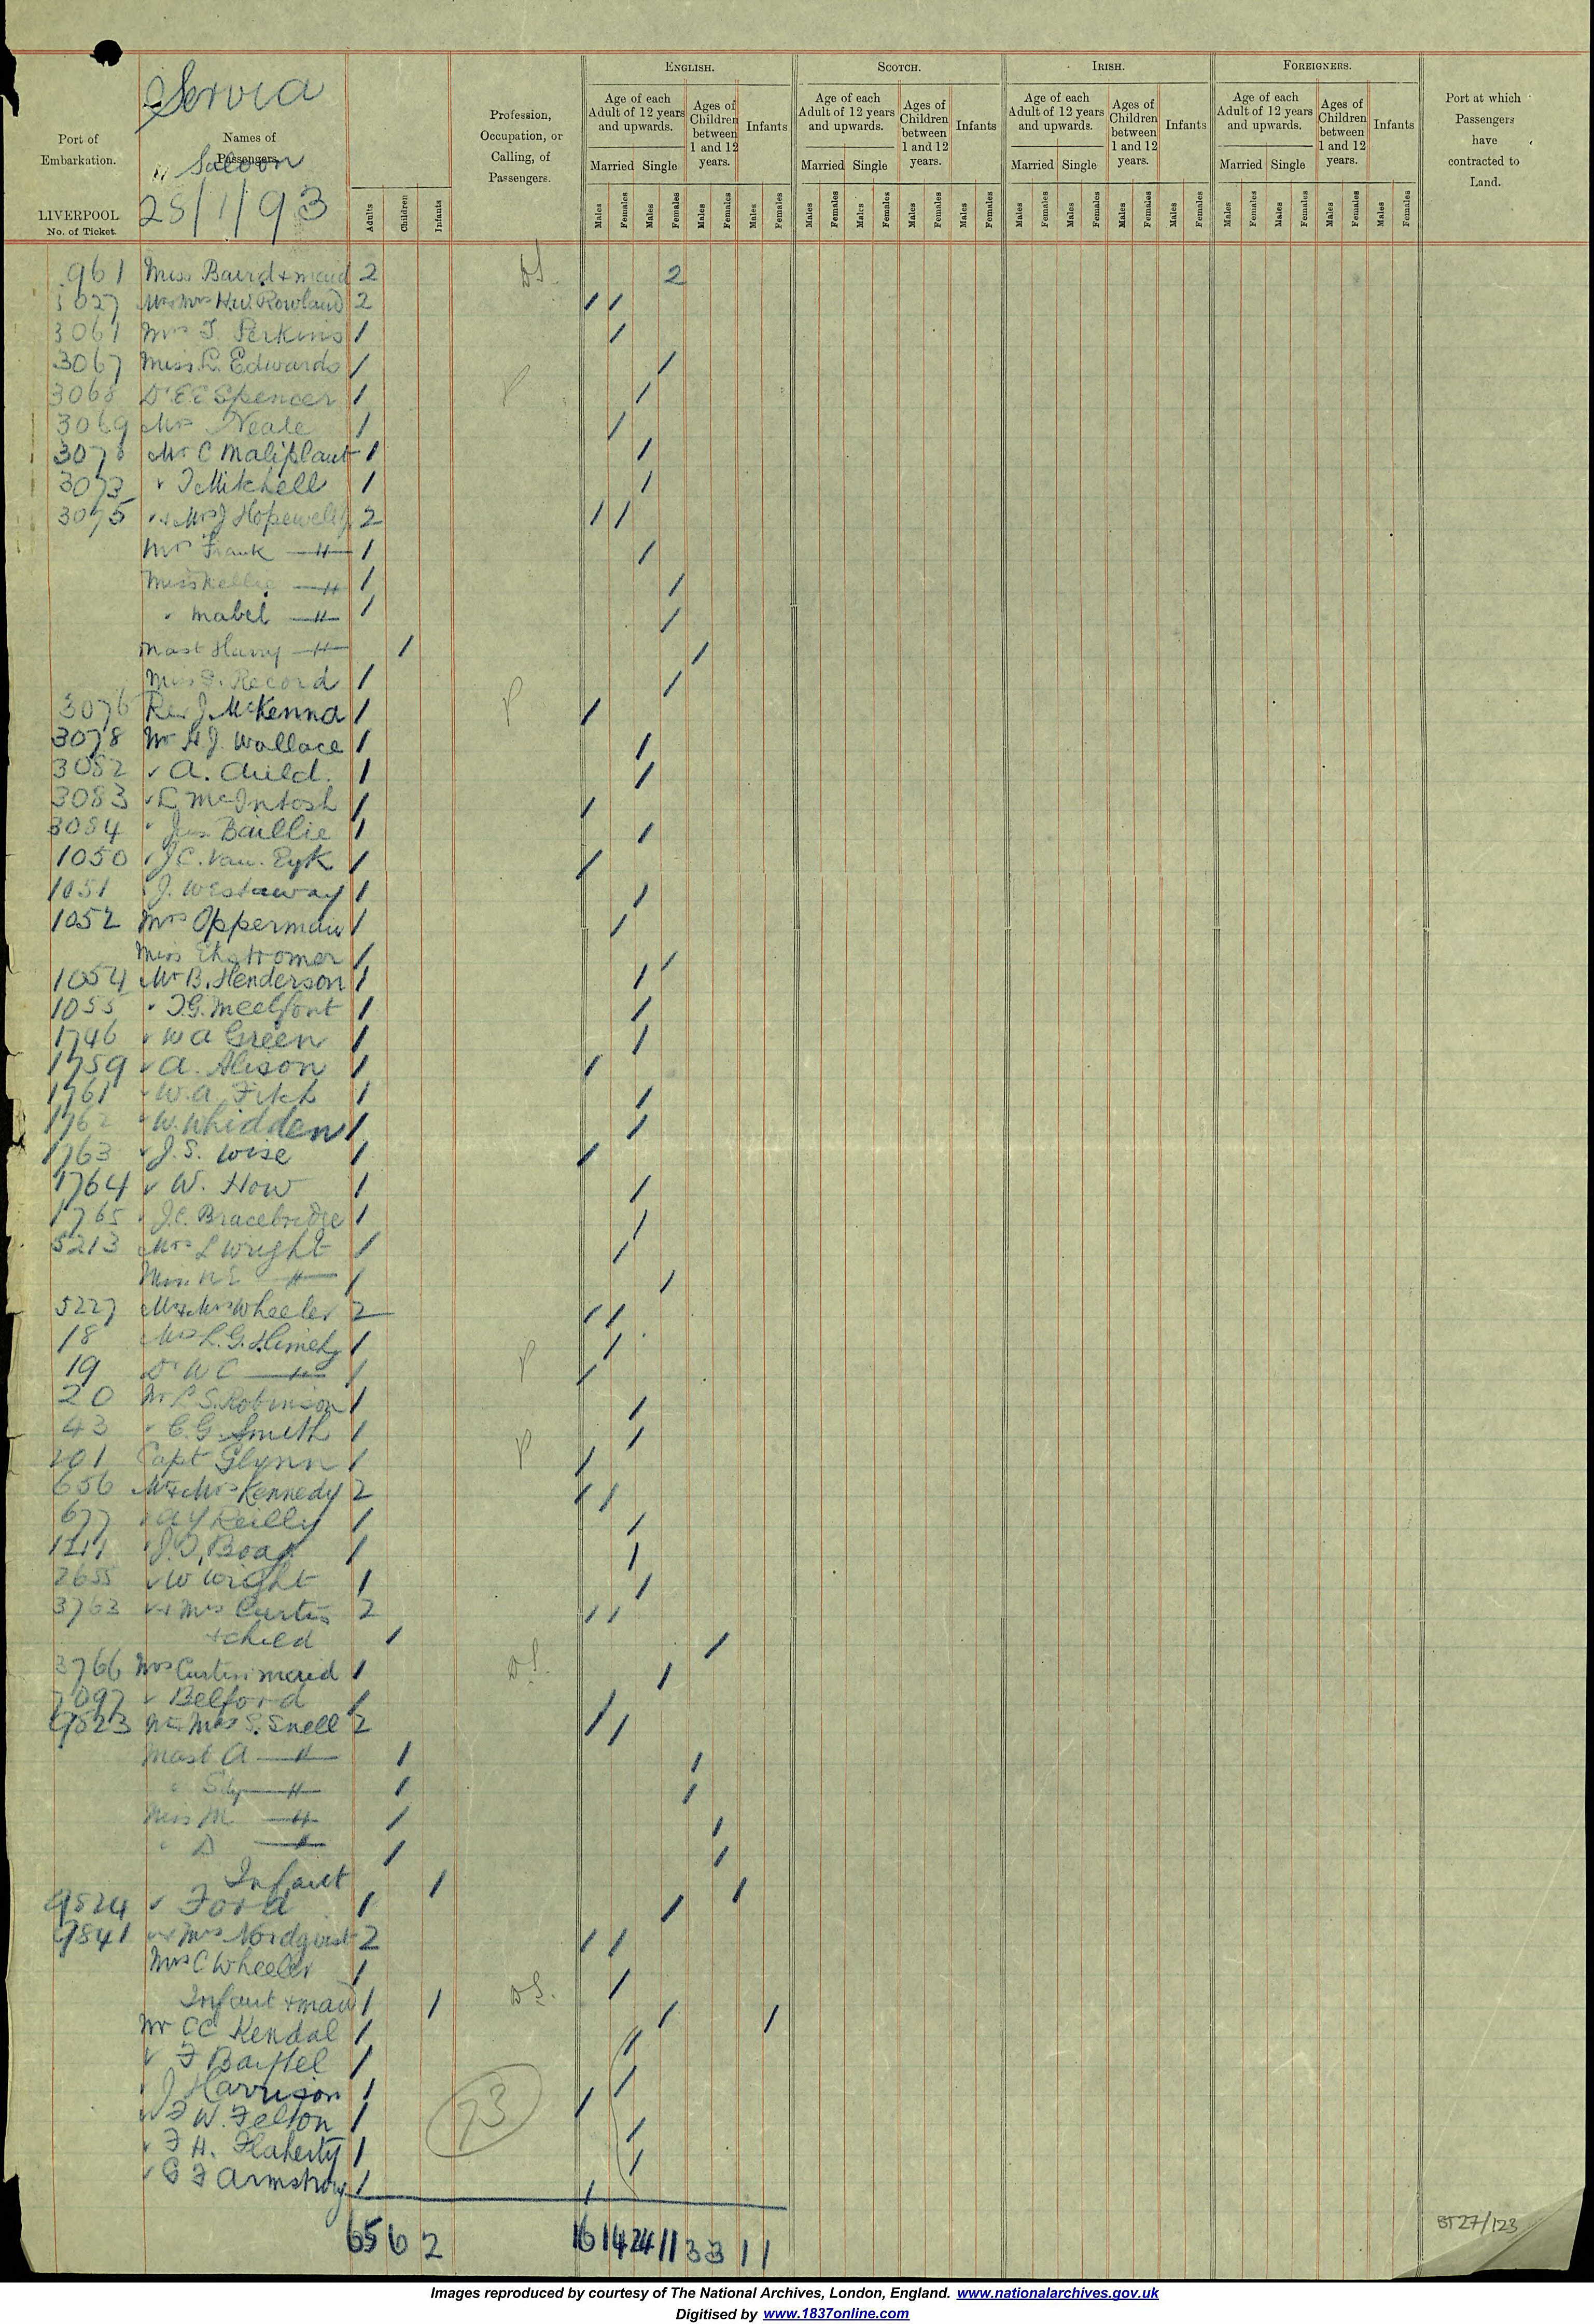 Servia
Saloon
28/1/93
Port of Embarkation.
LIVERPOOL
No. of Ticket.
Names of Passengers.
Adults Children Infants
Profession, Occupation, or Calling, of Passengers.
ENGLISH. SCOTCH. IRISH. FOREIGNERS.
Age of each Adult of 12 years and upwards. Ages of Children between 1 and 12 years. Infants
Age of each Adult of 12 years and upwards. Ages of Children between 1 and 12 years. Infants
Age of each Adult of 12 years and upwards. Ages of Children between 1 and 12 years. Infants
Age of each Adult of 12 years and upwards. Ages of Children between 1 and 12 years. Infants
Married Single Married Single Married Single Married Single
Males Females Males Females Males Females Males Females
Males Females Males Females Males Females Males Females
Males Females Males Females Males Females Males Females
Males Females Males Females Males Females Males Females
Port at which Passengers have contracted to Land.
961 Miss Baird & maid 2 2
3027 Mr & Mrs H.W. Rowland 2 1 1
3061 Mrs J Perkins 1 1
3067 Miss L. Edwards 1 1
3068 Dr E E Spencer 1 P 1
3069 Mrs Neale 1 1
Mr C Maliphant 1 1
3073 " T Mitchell 1 1
3075 " & Mrs J Hopewell 2 1 1
Mr Frank —"— 1 1
Miss Nellie —"— 1 1
" Mabel —"— 1 1
Mast Harry —"— 1 1
Miss F. Record 1 1
3076 Rev J. McKenna 1 P 1
3078 Mr H J. Wallace 1 1
3082 " A. Auld. 1 1
3083 " L McIntosh 1 1
3084 " Jas Baillie 1 1
1050 " J C. Van. Eyk 1 1
1051 " J. Westaway 1 1
1052 Mrs Opperman 1 1
Miss Ekstromer 1 1
1054 Mr B. Henderson 1 1
1055 " T.G. Meelfont 1 1
1746 " W A Green 1 1
1759 " A. Alison 1 1
1761 " W. A Fitch 1 1
1762 " W. Whidden 1 1
1763 " J. S. Wise 1 1
1764 " W. How 1 1
1765 " J.C. Bracebridge 1 1
5213 Mrs L Wright 1 1
Miss N E —"— 1 1
5227 Mr & Mrs Wheeler 2 1 1
18 Mrs L. G. Himely 1 1
19 Dr W C —"— 1 P 1
20 Mr L S. Robinson 1 1
43 " C. G. Smith 1 1
201 Capt Glynn 1 P 1
656 Mr & Mrs Kennedy 2 1 1
677 " A Y Reilly 1 1
" J. T. Boag 1 1
2655 " W Wright 1 1
3763 " & Mrs Curtis 2 1 1
& child 1 1
3766 Mrs Curtis maid 1 1
7097 " Belford 1 1
9523 Mr & Mrs S. Snell 2 1 1
Mast A —"— 1 1
" —"— 1 1
Miss M —"— 1 1
" D —"— 1 1
Infant 1 1
9524 " Ford 1 1
9541 " & Mrs Nordqvist 2 1 1
Mrs C Wheeler 1 1
Infant & maid 1 1 1 1
Mr C C Kendal 1 1
" F Bartel 1 1
" J Harrison 1 1
" F W. Felton 1 1
" F H. Flaherty 1 1
" G F Armstrong 1 1
73
65 6 2 16 14 24 11 3 3 1 1
BT27/123
Images reproduced by courtesy of The National Archives, London, England. www.nationalarchives.gov.uk
Digitised by www.1837online.com